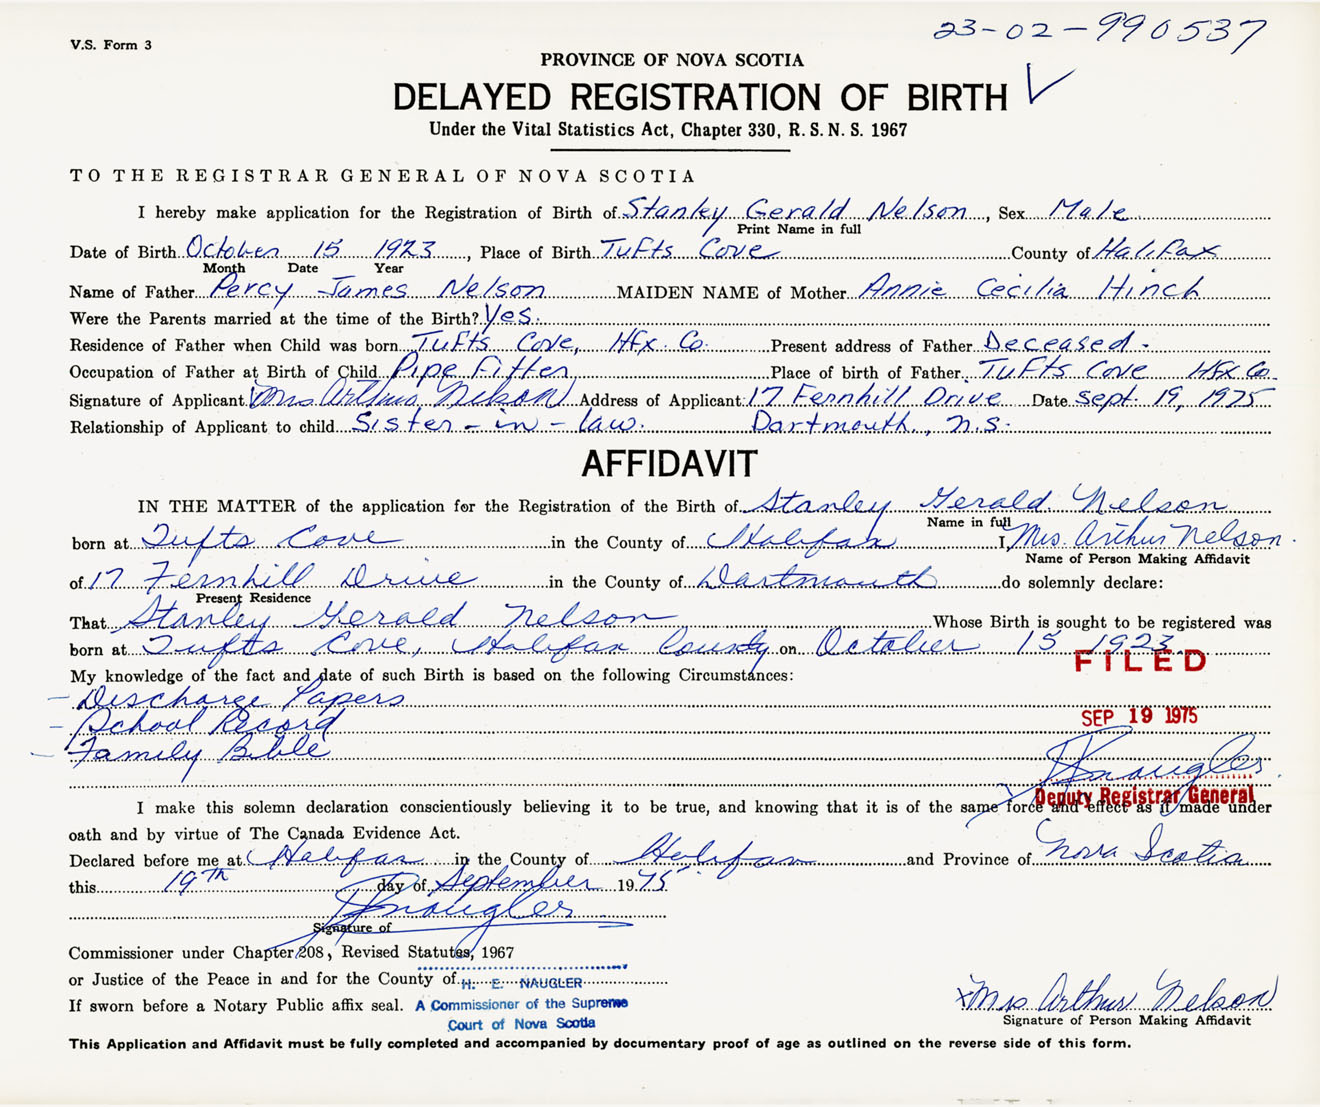 V.S. Form 3
23-02-990537
PROVINCE OF NOVA SCOTIA
DELAYED REGISTRATION OF BIRTH
Under the Vital Statistics Act, Chapter 330, R. S. N. S. 1967
TO THE REGISTRAR GENERAL OF NOVA SCOTIA
I hereby make application for the Registration of Birth of Stanley Gerald Nelson, Sex Male
Print Name in full
Date of Birth October 15 1923, Place of Birth Tufts Cove County of Halifax
Month Date Year
Name of Father Percy James Nelson MAIDEN NAME of Mother Annie Cecilia Hinch
Were the Parents married at the time of the Birth? Yes.
Residence of Father when Child was born Tufts Cove, Hfx. Co. Present address of Father Deceased.
Occupation of Father at Birth of Child Pipe Fitter Place of birth of Father Tufts Cove Hfx Co.
Signature of Applicant Mrs Arthur Nelson Address of Applicant 17 Fernhill Drive Date sept. 19, 1975
Relationship of Applicant to child Sister-in-law. Dartmouth, N.S.
AFFIDAVIT
IN THE MATTER of the application for the Registration of the Birth of Stanley Gerald Nelson
Name in full
born at Tufts Cove in the County of Halifax I, Mrs. Arthur Nelson.
Name of Person Making Affidavit
of 17 Fernhill Drive in the County of Dartmouth do solemnly declare:
Present Residence
That Stanley Gerald Nelson Whose Birth is sought to be registered was
born at Tufts Cove, Halifax County on October 15 1923
FILED
My knowledge of the fact and date of such Birth is based on the following Circumstances:
- Discharge Papers
- School Record
SEP 19 1975
- Family Bible
H E Naugler
Deputy Registrar General
I make this solemn declaration conscientiously believing it to be true, and knowing that it is of the same force and effect as if made under
oath and by virtue of The Canada Evidence Act.
Declared before me at Halifax in the County of Halifax and Province of Nova Scotia
this 19th day of September 1975
H E Naugler
Signature of
Commissioner under Chapter 208, Revised Statutes, 1967
or Justice of the Peace in and for the County of H. E. NAUGLER
If sworn before a Notary Public affix seal. A Commissioner of the Supreme
Court of Nova Scotia
x Mrs Arthur Nelson
Signature of Person Making Affidavit
This Application and Affidavit must be fully completed and accompanied by documentary proof of age as outlined on the reverse side of this form.